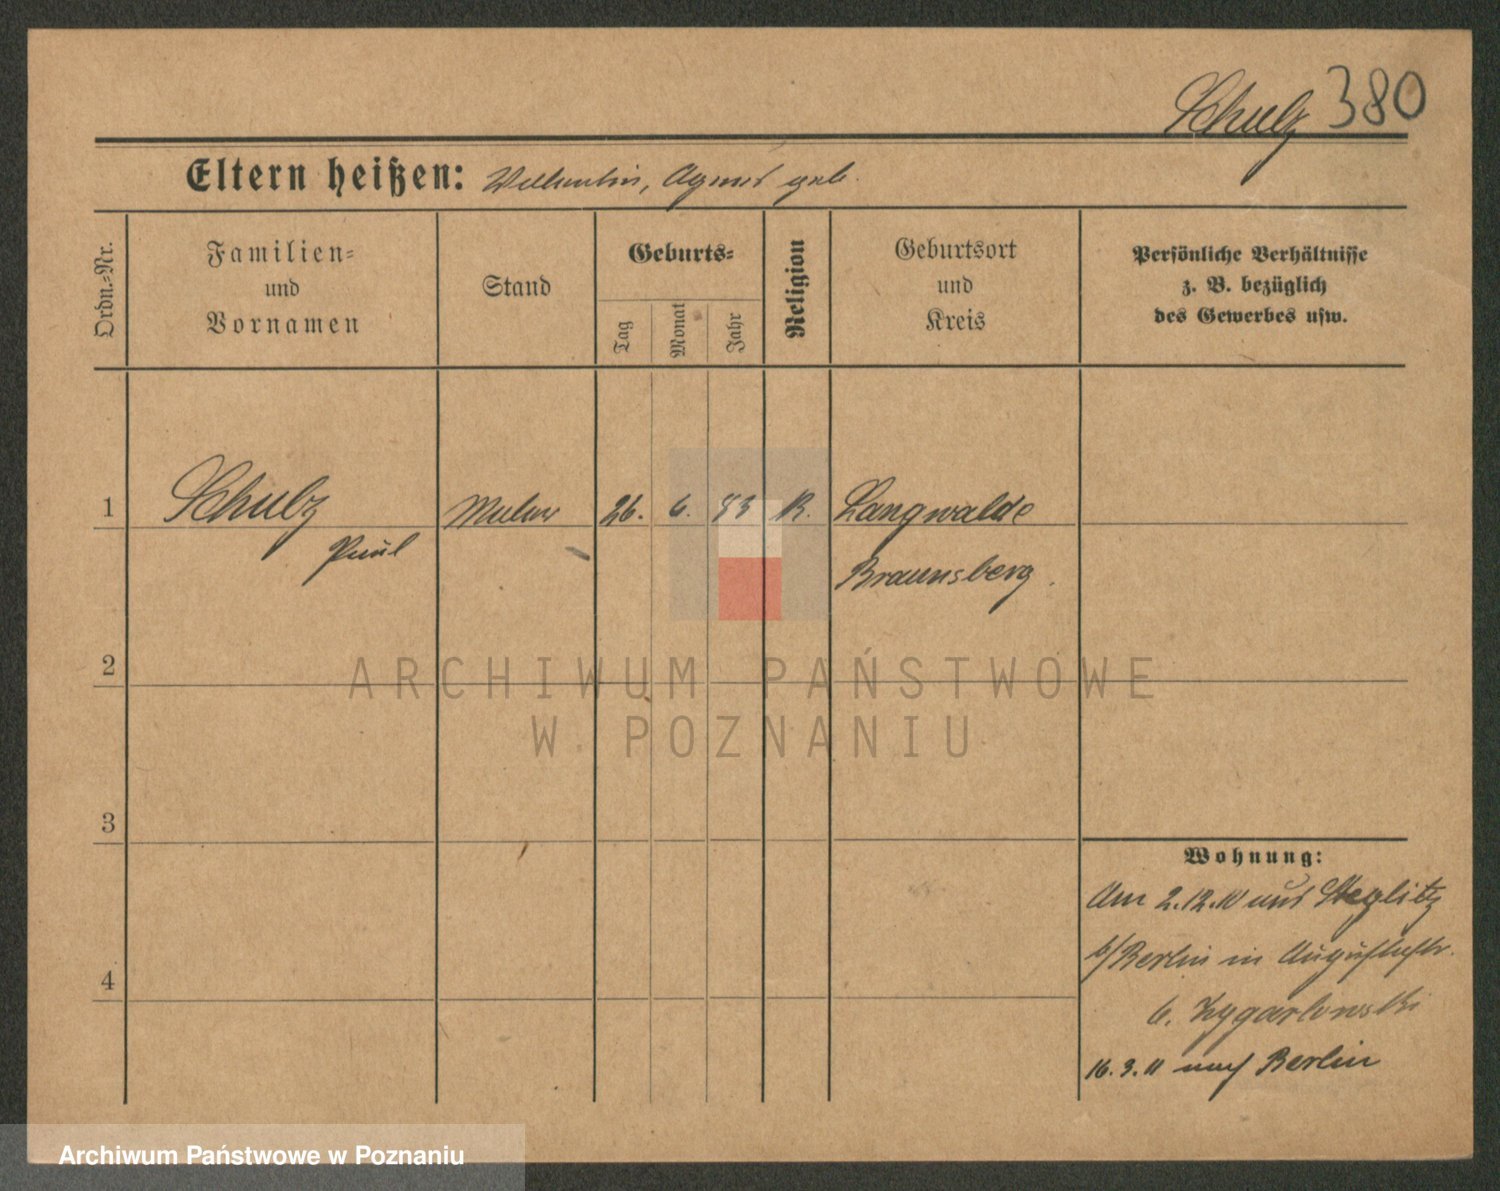 Schulz 380
Eltern heißen: Valentin, Agnes geb.
Ordn.-Nr.
Familien-
und
Vornamen
Stand
Geburts-
Tag
Monat
Jahr
Religion
Geburtsort
und
Kreis
Persönliche Verhältnisse
z. B. bezüglich
des Gewerbes usw.
1 Schulz Maler 26. 6. 83 K. Langwalde
Paul Braunsberg.
2
3
4
Wohnung:
Am 2.12.10 aus Steglitz
b/Berlin in Augustastr.
b. Zygarlowski
16.3.11 nach Berlin
ARCHIWUM PAŃSTWOWE
W POZNANIU
Archiwum Państwowe w Poznaniu